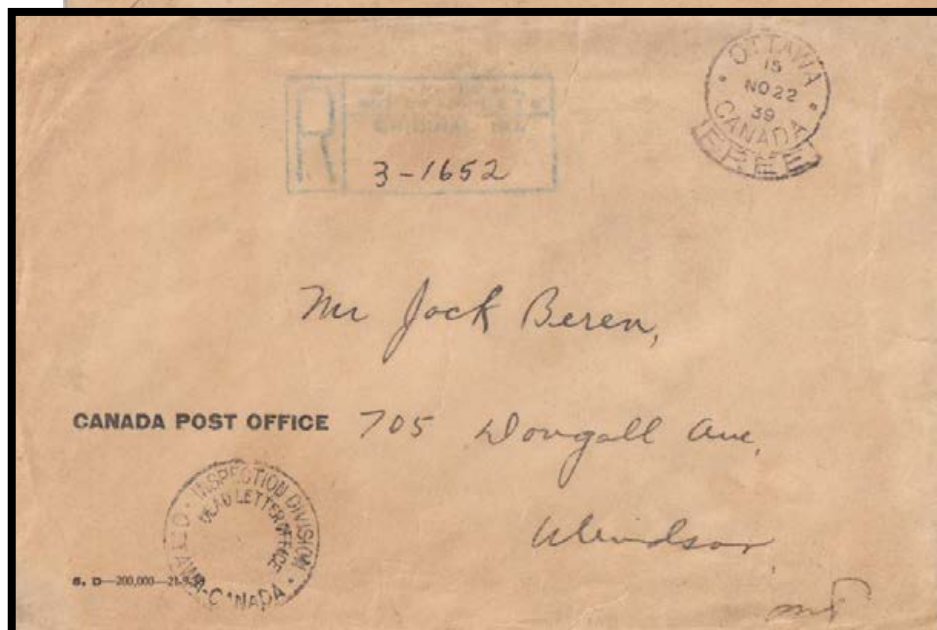 OTTAWA
15
NO 22
39
CANADA
FREE
R
3-1652
Mr Jack Beren,
CANADA POST OFFICE
705 Dougall Ave,
Windsor,
INSPECTION DIVISION
DEAD LETTER OFFICE
OTTAWA-CANADA
6. D—200,000—21-9-